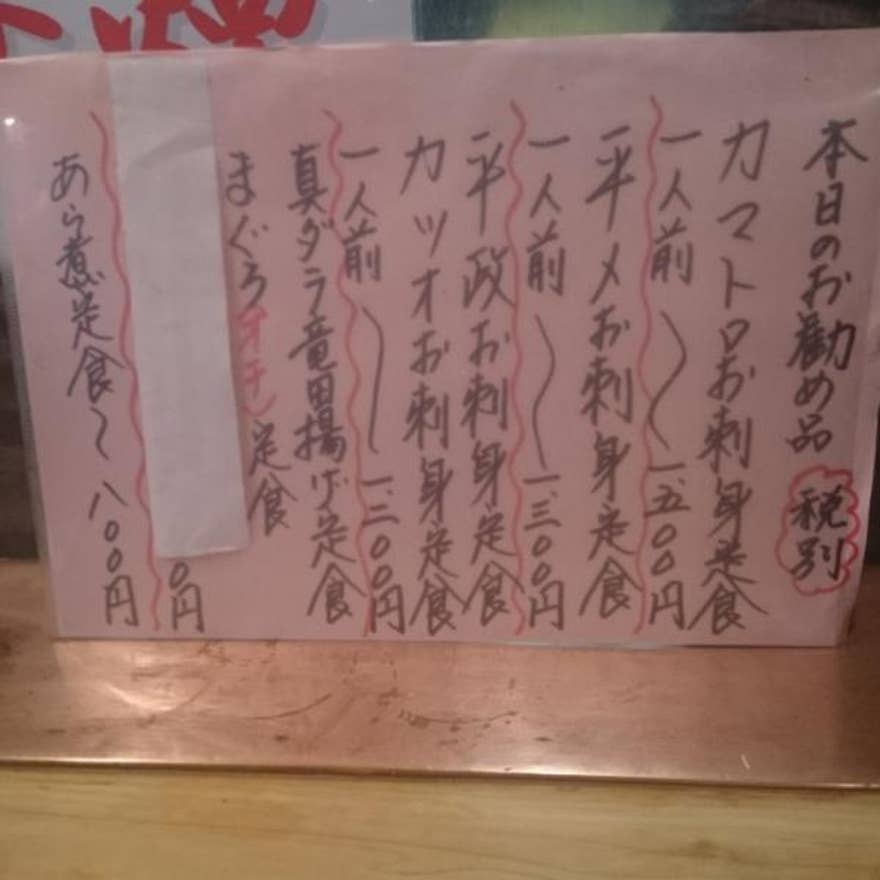 本日のお勧め品 税別
カマトロお刺身定食
一人前〜一、五〇〇円
平メお刺身定食
一人前〜一、三〇〇円
平政お刺身定食
カツオお刺身定食
一人前〜一、二〇〇円
真ダラ竜田揚げ定食
まぐろ定食
〇円
あら煮定食〜八〇〇円